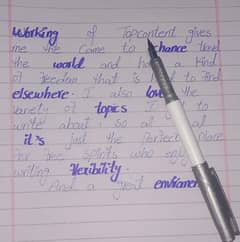 Working of Topcontent gives
me the Came to chance travel
the world and have a kind
of freedom that is hard to find
elsewhere. I also love the
variety of topics I get to
write about, so all
it's just the perfect place
for free spirits who enjoy
writing flexibility.
And a great environment